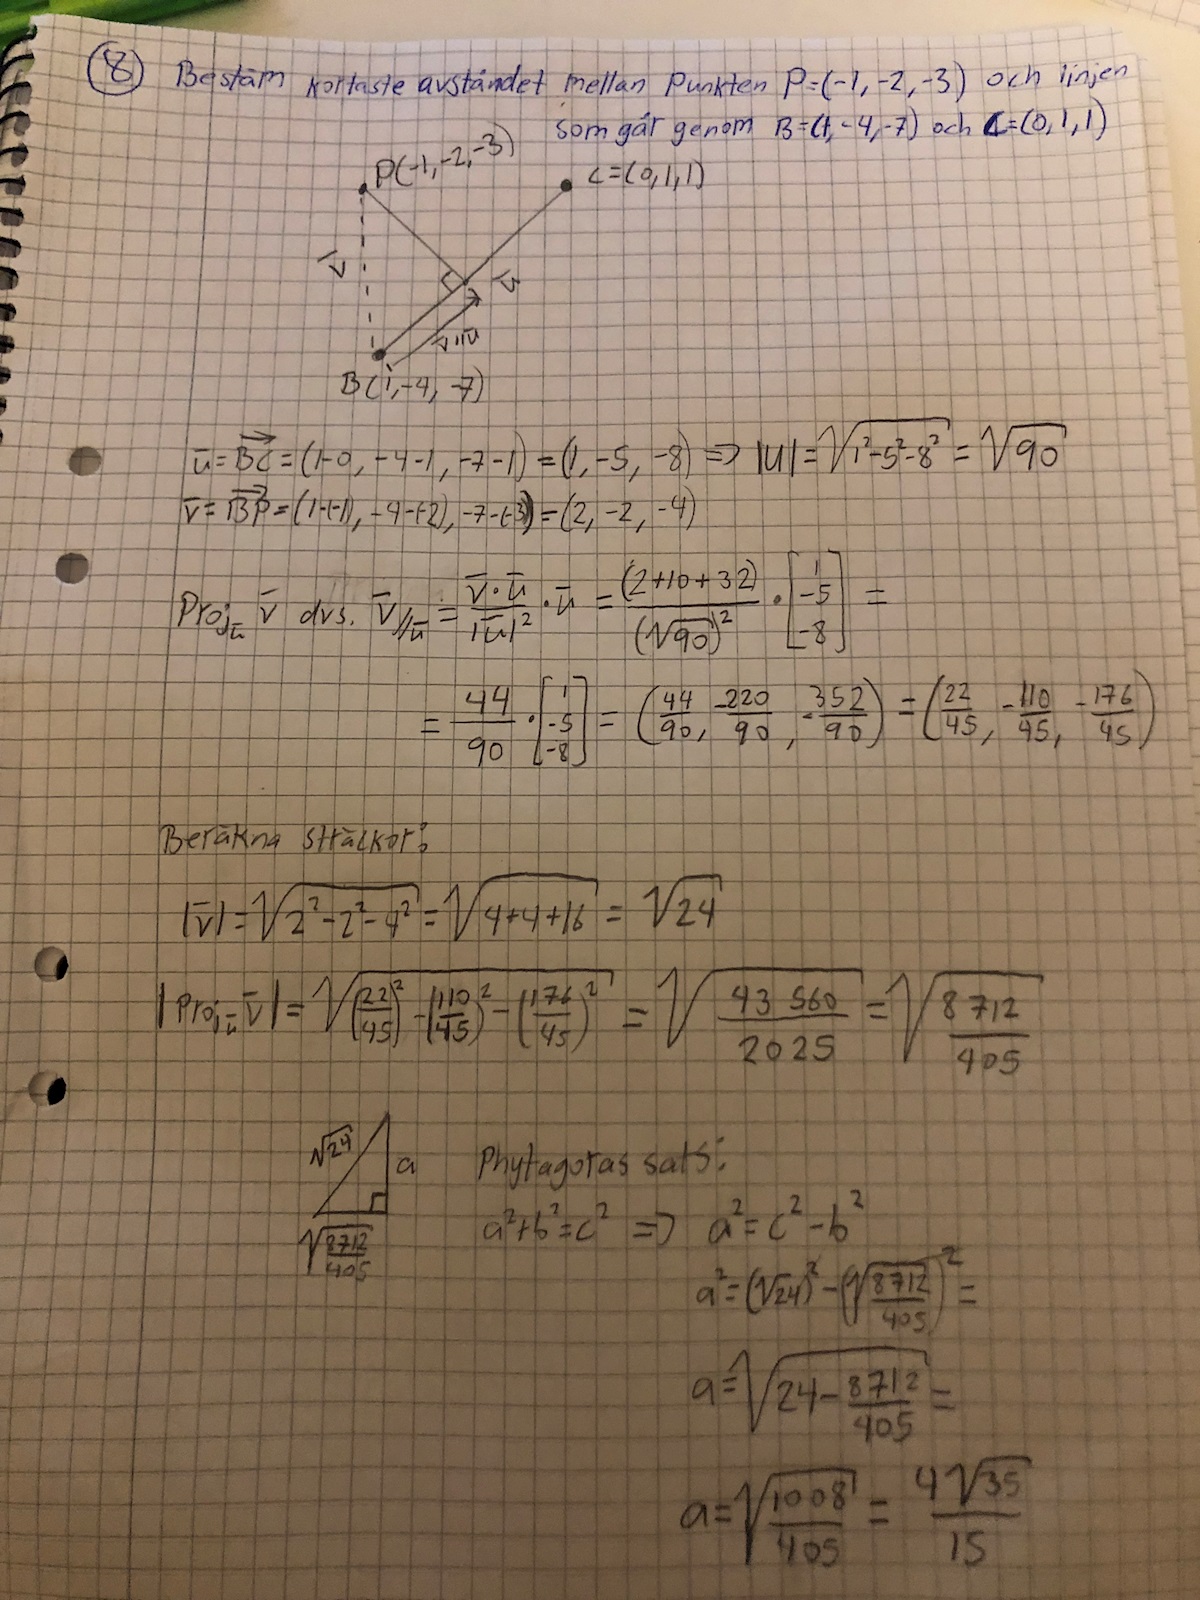 8 Bestäm kortaste avståndet mellan punkten P=(-1, -2, -3) och linjen
som går genom B=(1, -4, -7) och C=(0, 1, 1)
P(-1, -2, -3)
C=(0, 1, 1)
v̄
ū
v̄//ū
B(1, -4, -7)
ū = BC→ = (1-0, -4-1, -7-1) = (1, -5, -8) => |u| = √(1²-5²-8²) = √90
v̄ = BP→ = (1-(-1), -4-(-2), -7-(-3)) = (2, -2, -4)
Proj_ū v̄ dvs. v̄_//ū = (v̄·ū)/|ū|² · ū = (2+10+32)/(√90)² · [1 -5 -8] =
= 44/90 · [1 -5 -8] = (44/90, -220/90, -352/90) = (22/45, -110/45, -176/45)
Beräkna sträckor:
|v̄| = √(2²-2²-4²) = √(4+4+16) = √24
|Proj_ū v̄| = √((22/45)² - (110/45)² - (176/45)²) = √(43 560/2025) = √(8712/405)
√24
a
√(8712/405)
Phytagoras sats:
a²+b²=c² => a²=c²-b²
a²=(√24)²-(√(8712/405))² =
a=√(24-8712/405) =
a=√(1008/405) = 4√35/15